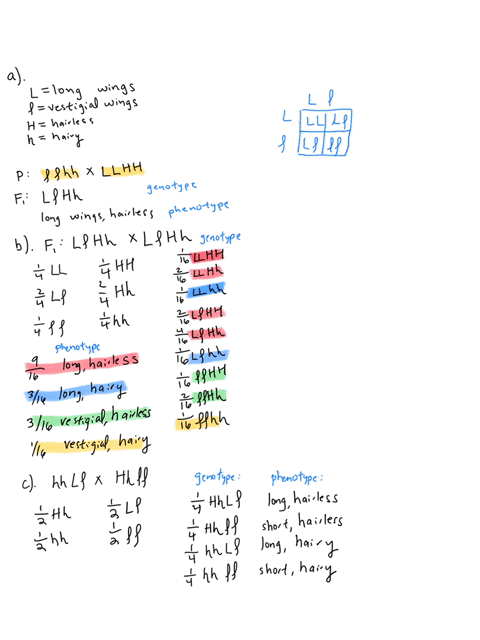 a).
L = long wings
l = vestigial wings
H = hairless
h = hairy
L l
L LL Ll
l Ll ll
P: llhh x LLHH
F₁: LlHh genotype
long wings, hairless phenotype
b). F₁: LlHh x LlHh genotype
1/4 LL 1/4 HH
2/4 Ll 2/4 Hh
1/4 ll 1/4 hh
1/16 LLHH
2/16 LLHh
1/16 LLhh
2/16 LlHH
4/16 LlHh
1/16 Llhh
1/16 llHH
2/16 llHh
1/16 llhh
phenotype
9/16 long, hairless
3/16 long, hairy
3/16 vestigial, hairless
1/16 vestigial, hairy
c). hhLl x Hhll
1/2 Hh 1/2 Ll
1/2 hh 1/2 ll
genotype: phenotype:
1/4 HhLl long, hairless
1/4 Hhll short, hairless
1/4 hhLl long, hairy
1/4 hhll short, hairy